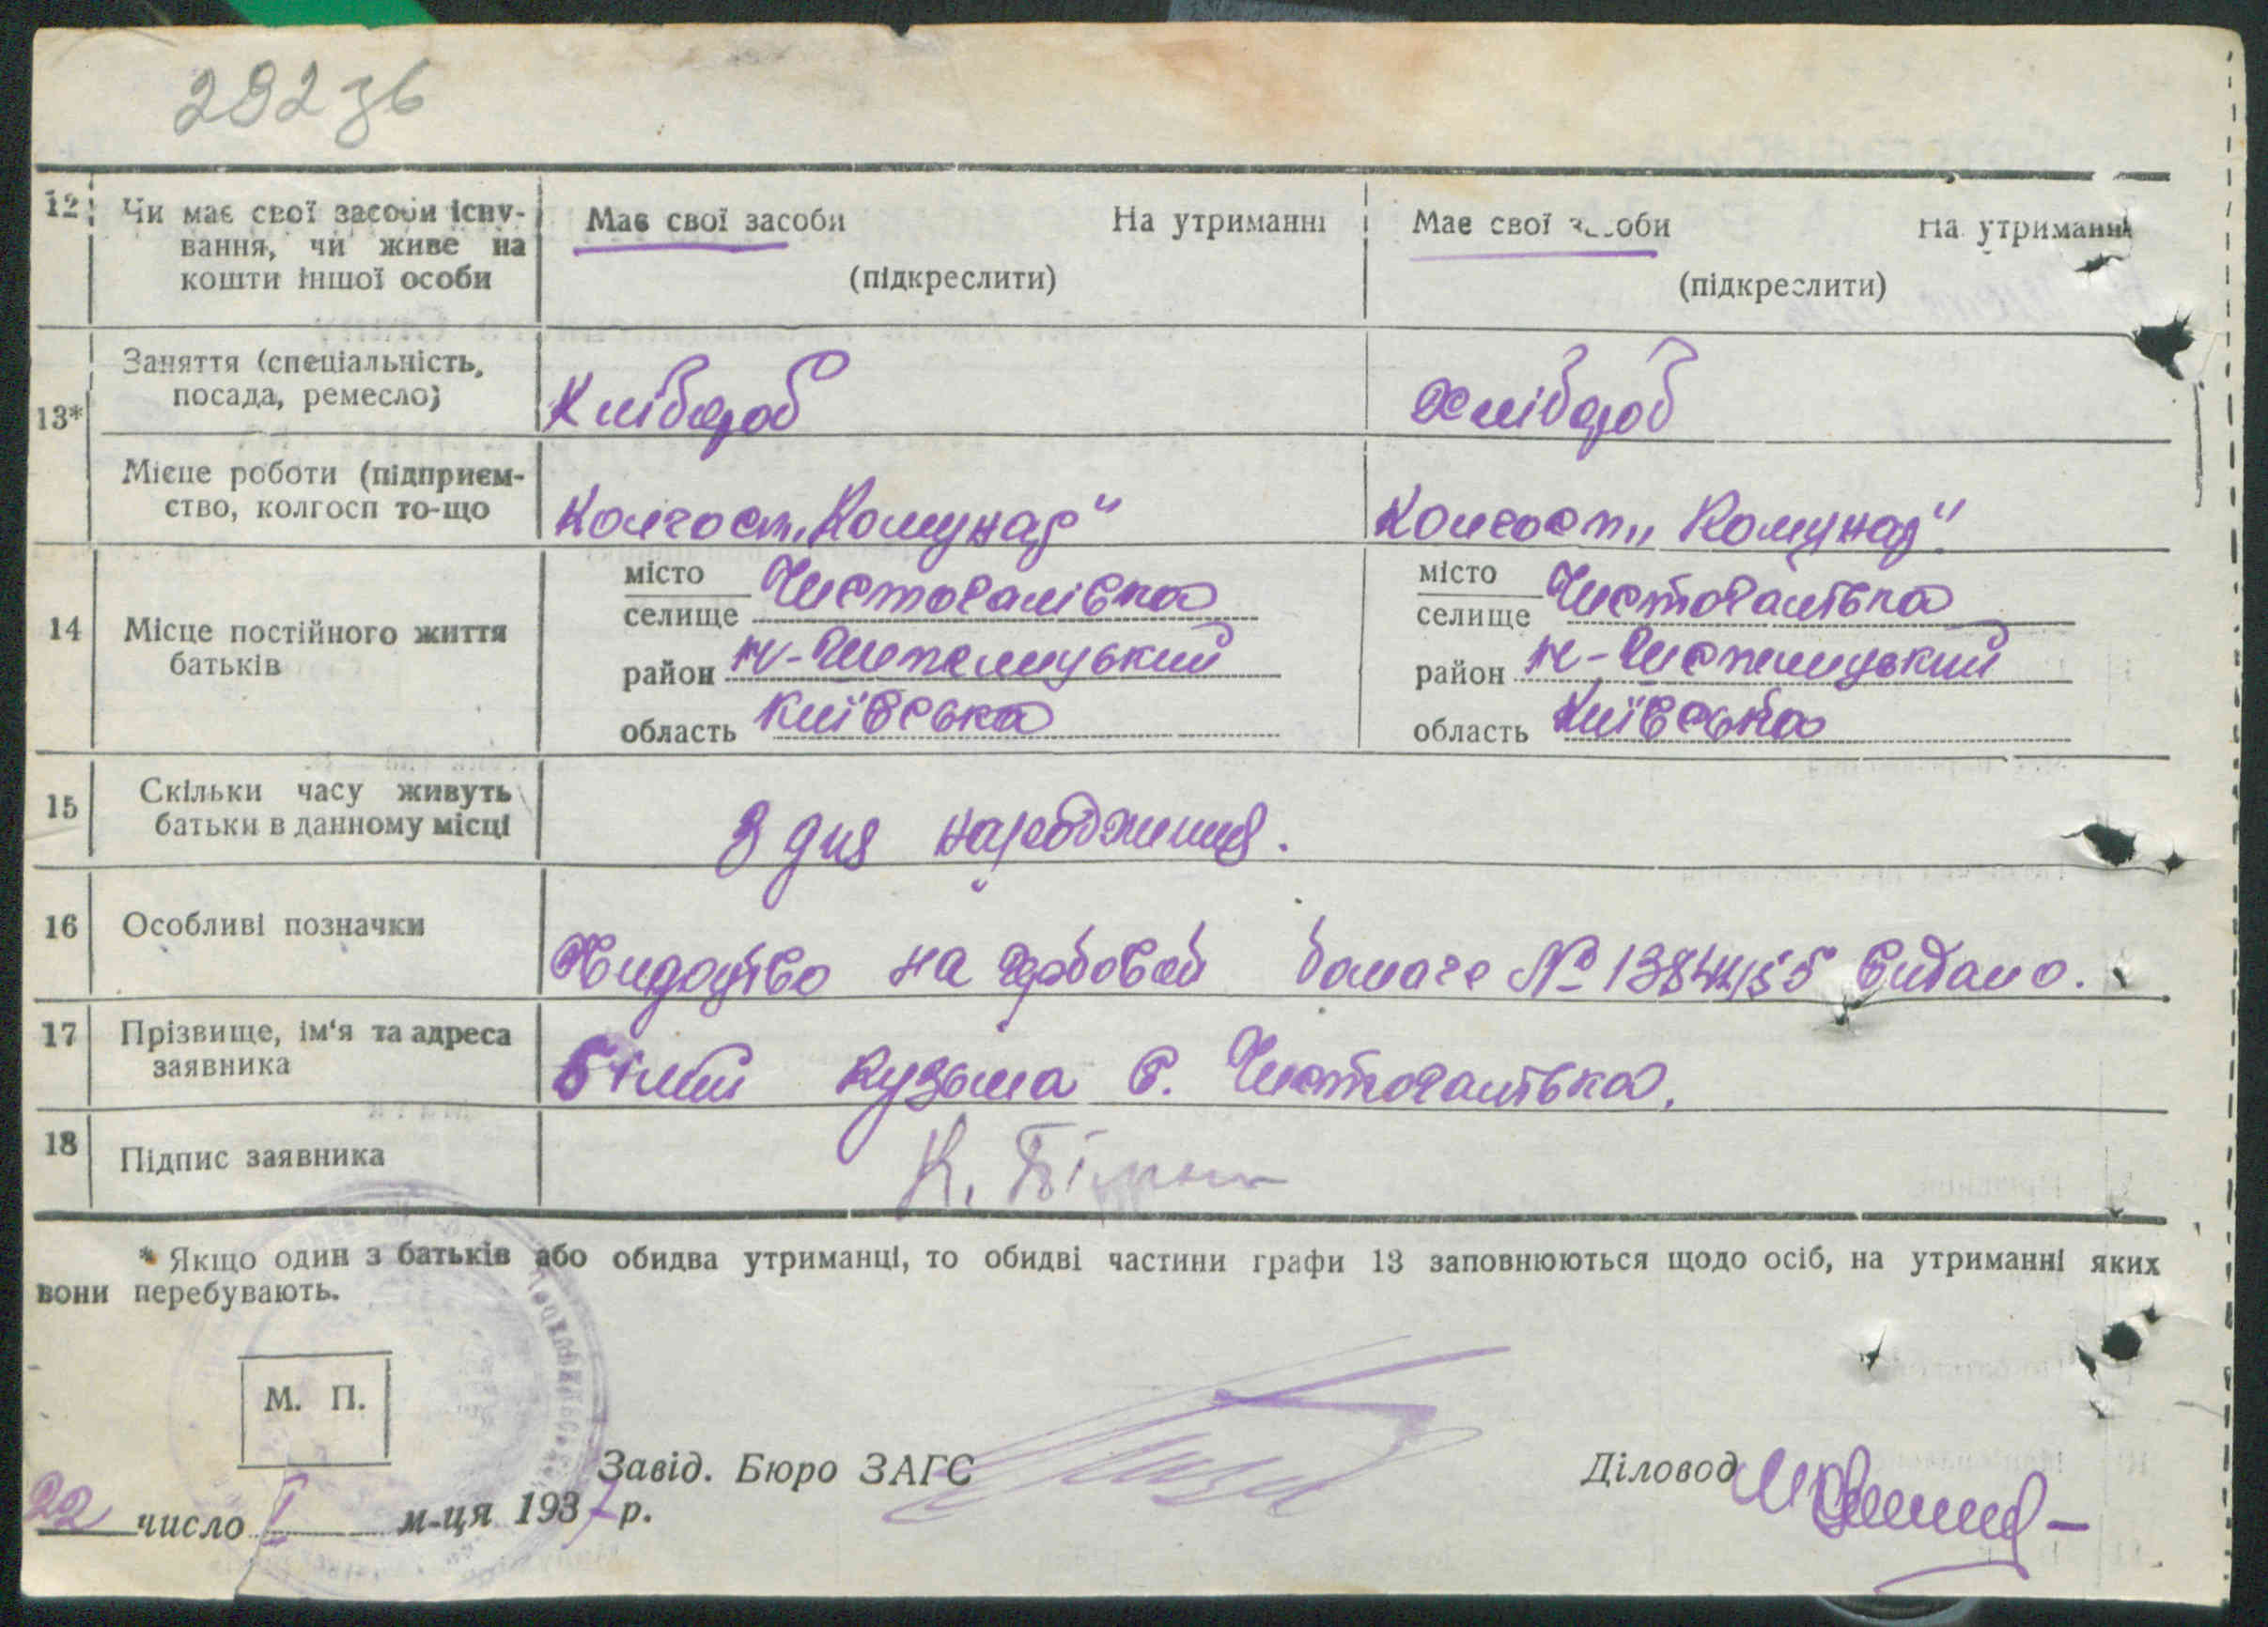 292 зв
12 Чи має свої засоби існу- Має свої засоби На утриманні Має свої засоби На утриманні
вання, чи живе на
кошти іншої особи (підкреслити) (підкреслити)
Заняття (спеціальність,
13* посада, ремесло) Хлібороб Хлібороб
Місце роботи (підприєм-
ство, колгосп то-що Колгосп „Комунар" Колгосп „Комунар"
місто Чистогалівка місто Чистогалівка
14 Місце постійного життя селище селище
батьків район Н-Шепелицький район Н-Шепелицький
область Київська область Київська
15 Скільки часу живуть
батьки в данному місці З дня народження.
16 Особливі позначки
Свидоцтво на гербовой бомаге № видано.
17 Прізвище, ім'я та адреса
заявника Білий Кузьма с. Чистогалівка.
18 Підпис заявника К. Білий
* Якщо один з батьків або обидва утриманці, то обидві частини графи 13 заповнюються щодо осіб, на утриманні яких
вони перебувають.
М. П.
Завід. Бюро ЗАГС Діловод
22 число I м-ця 1937 р.